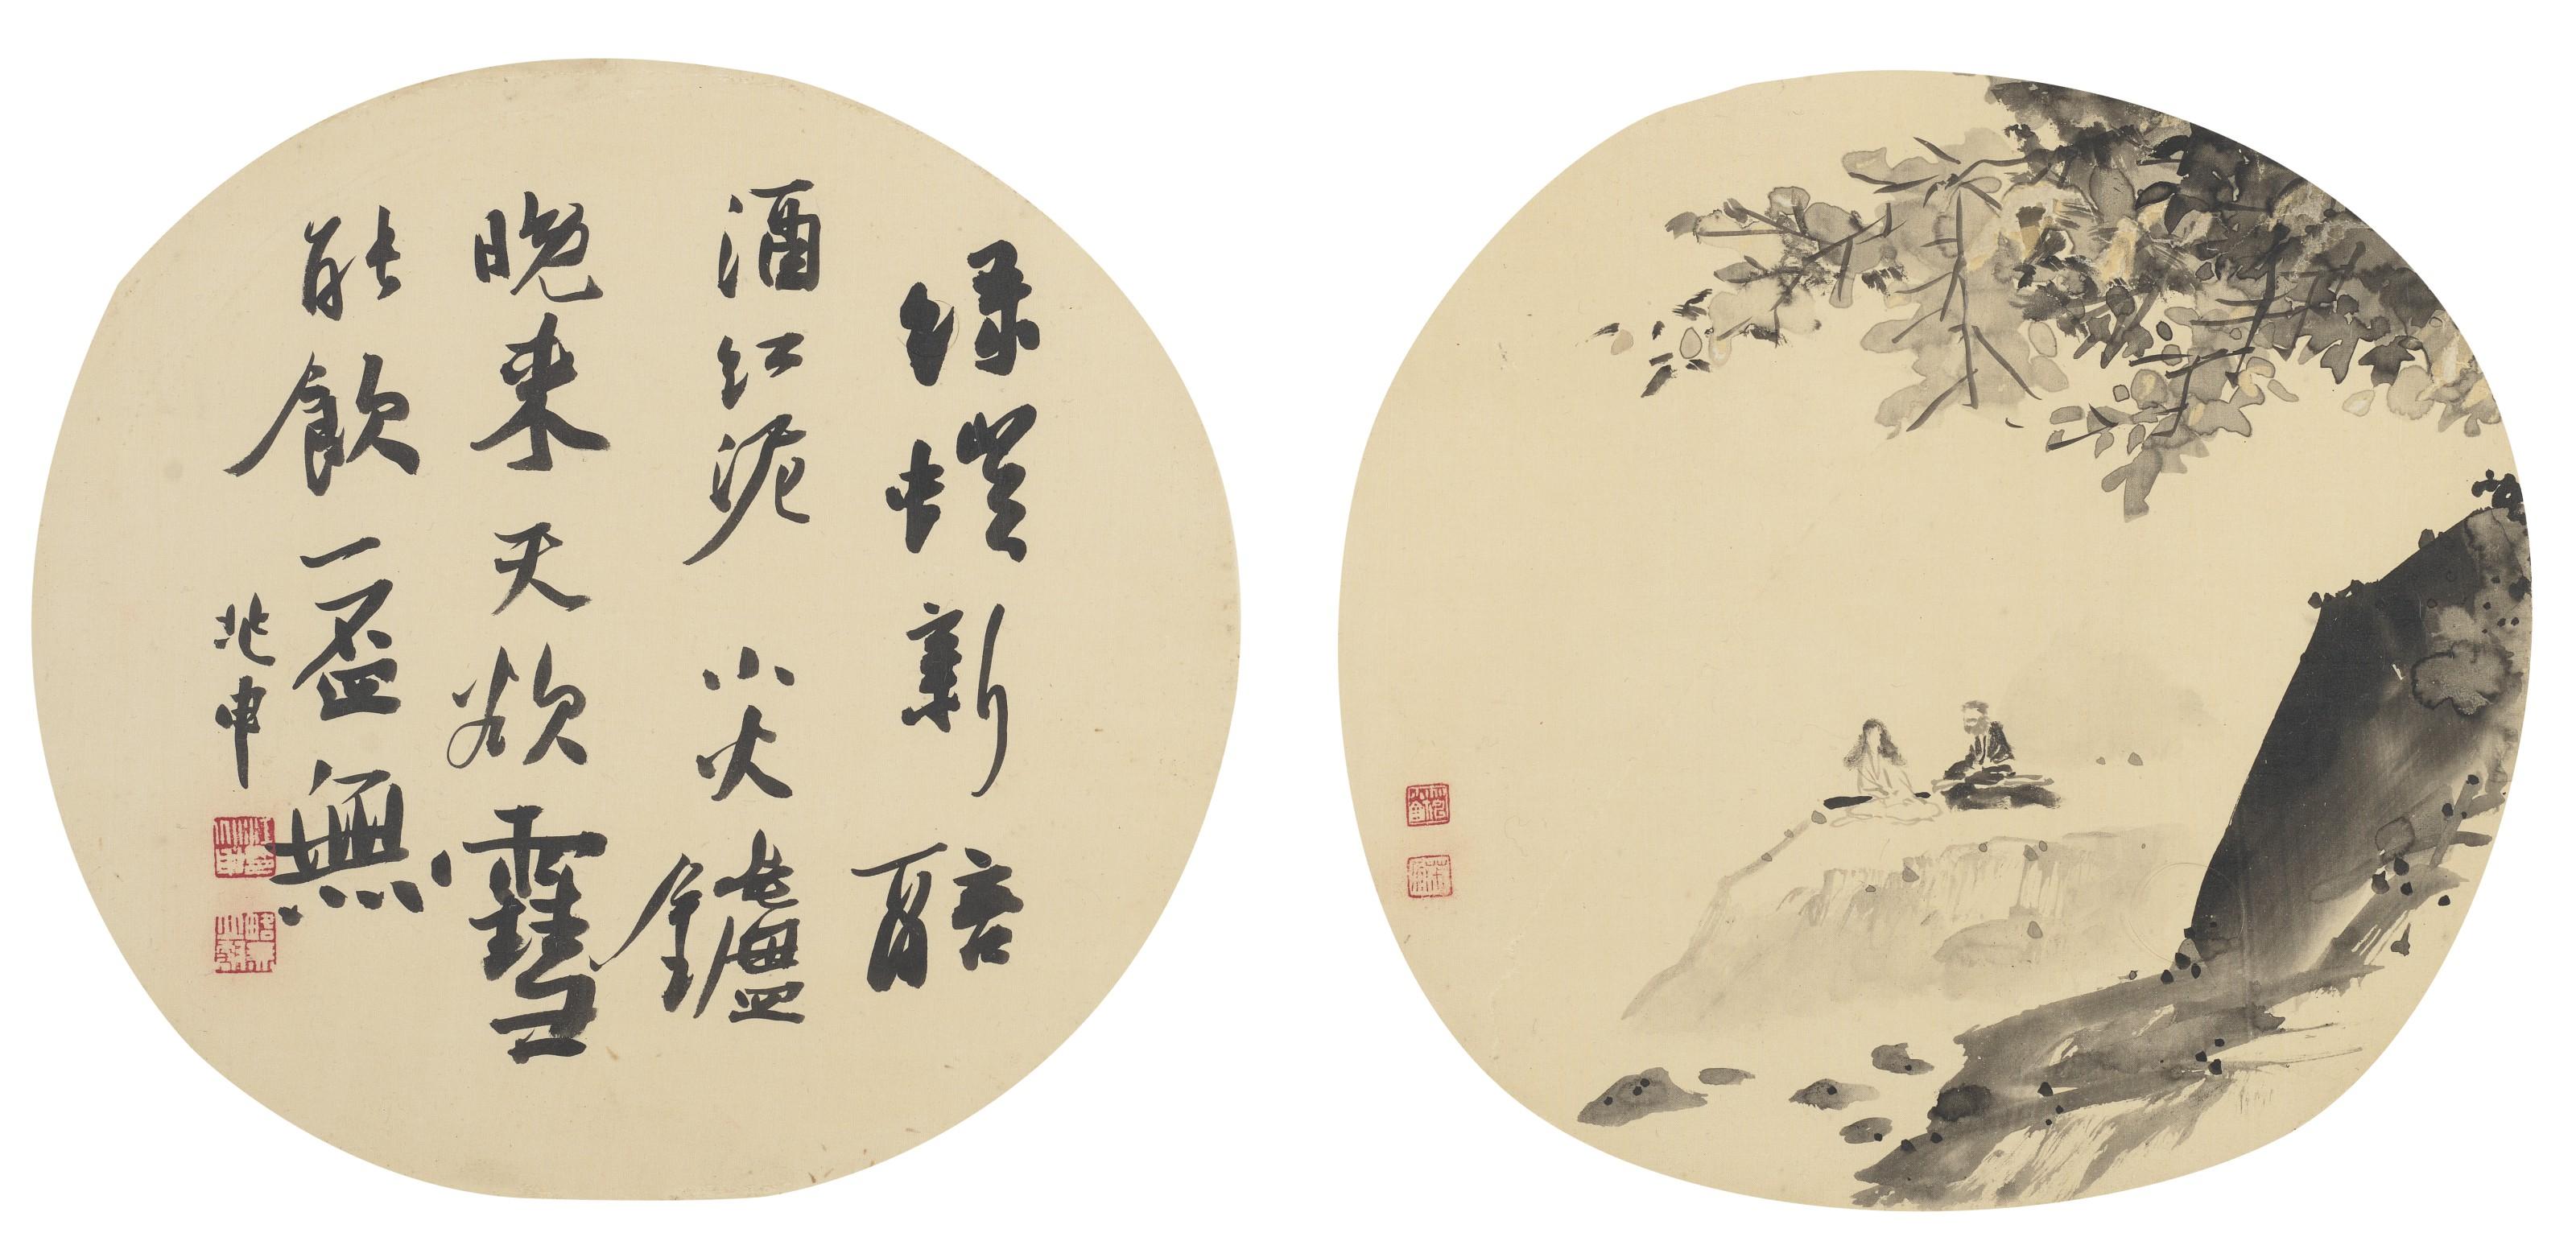 緑螘新醅
酒紅泥小火鑪
晚来天欲雪
能飲一盃無
兆申